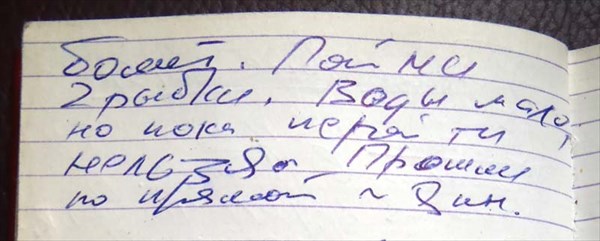 болит. Поймали
2 рыбки. Воды мало,
но пока перейти
нельзя. Прошли
по прямой ~